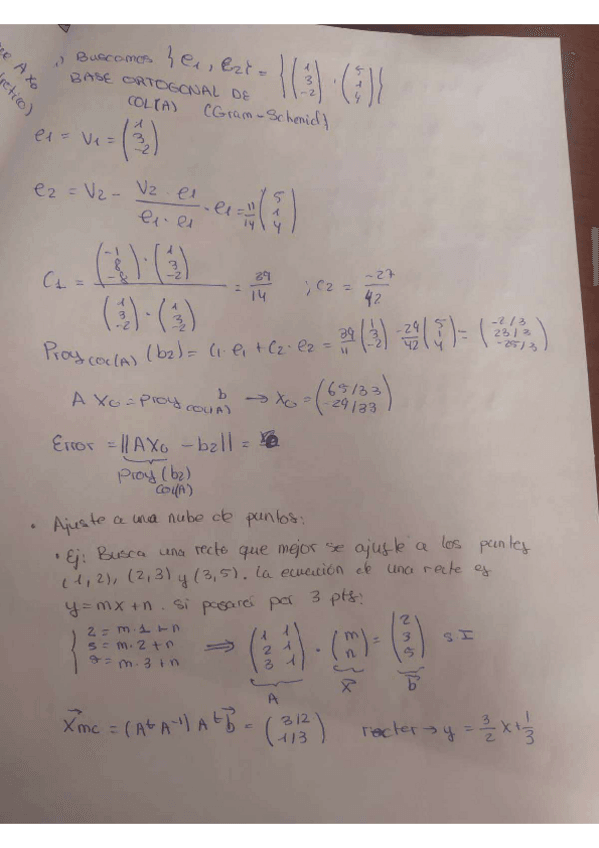 Buscamos {e1, e2} = {(1 3 -2), (5 1 4)}
BASE ORTOGONAL DE
COL(A) (Gram-Schemid)
e1 = V1 = (1 3 -2)
e2 = V2 - V2 · e1 / e1 · e1 · e1 = 11/14 (5 1 4)
C1 = (-1 8 -8) · (1 3 -2) / (1 3 -2) · (1 3 -2) = 39/14 ; C2 = -27/42
Proy COL(A) (b2) = C1 · e1 + C2 · e2 = 39/11 (1 3 -2) -29/42 (5 1 4) = (-2/3 23/3 -25/3)
A X0 = proy COL(A) b → X0 = (65/33 -29/33)
Error = ||AX0 - b2|| =
proy (b2)
COL(A)
• Ajuste a una nube de puntos:
• Ej: Busca una recta que mejor se ajuste a los puntos
(1,2), (2,3) y (3,5). La ecuación de una recta es
y = mx + n. Si pasara por 3 pts:
{ 2 = m·1 + n
5 = m·2 + n
9 = m·3 + n
⇒ (1 1 2 1 3 1) · (m n) = (2 3 5) S I
A x b
Xmc = (At A-1) At b = (3/2 1/3) recta → y = 3/2 x + 1/3